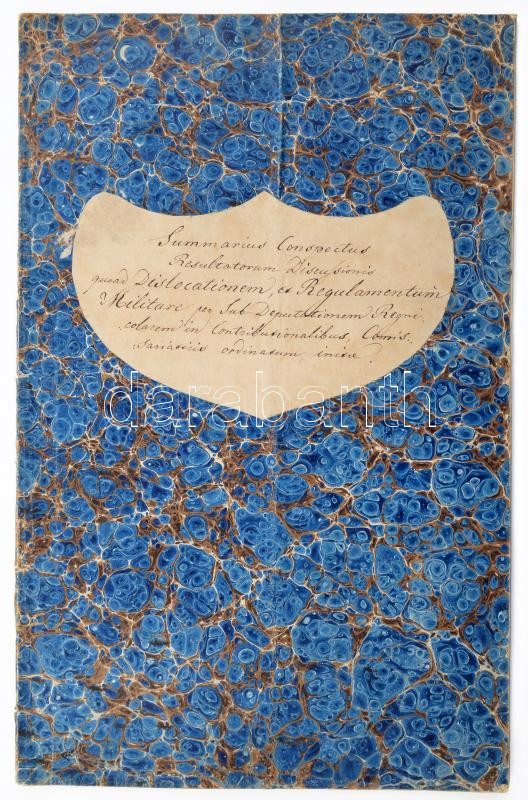 Summarius Conspectus
Resultatorum Discusionis
quoad Dislocationem, et Regulamentum
Militare per Sub Deputationem Regni
colarem in Contributionalibus, Comis-
sariaticis ordinatum, initae
darabanth